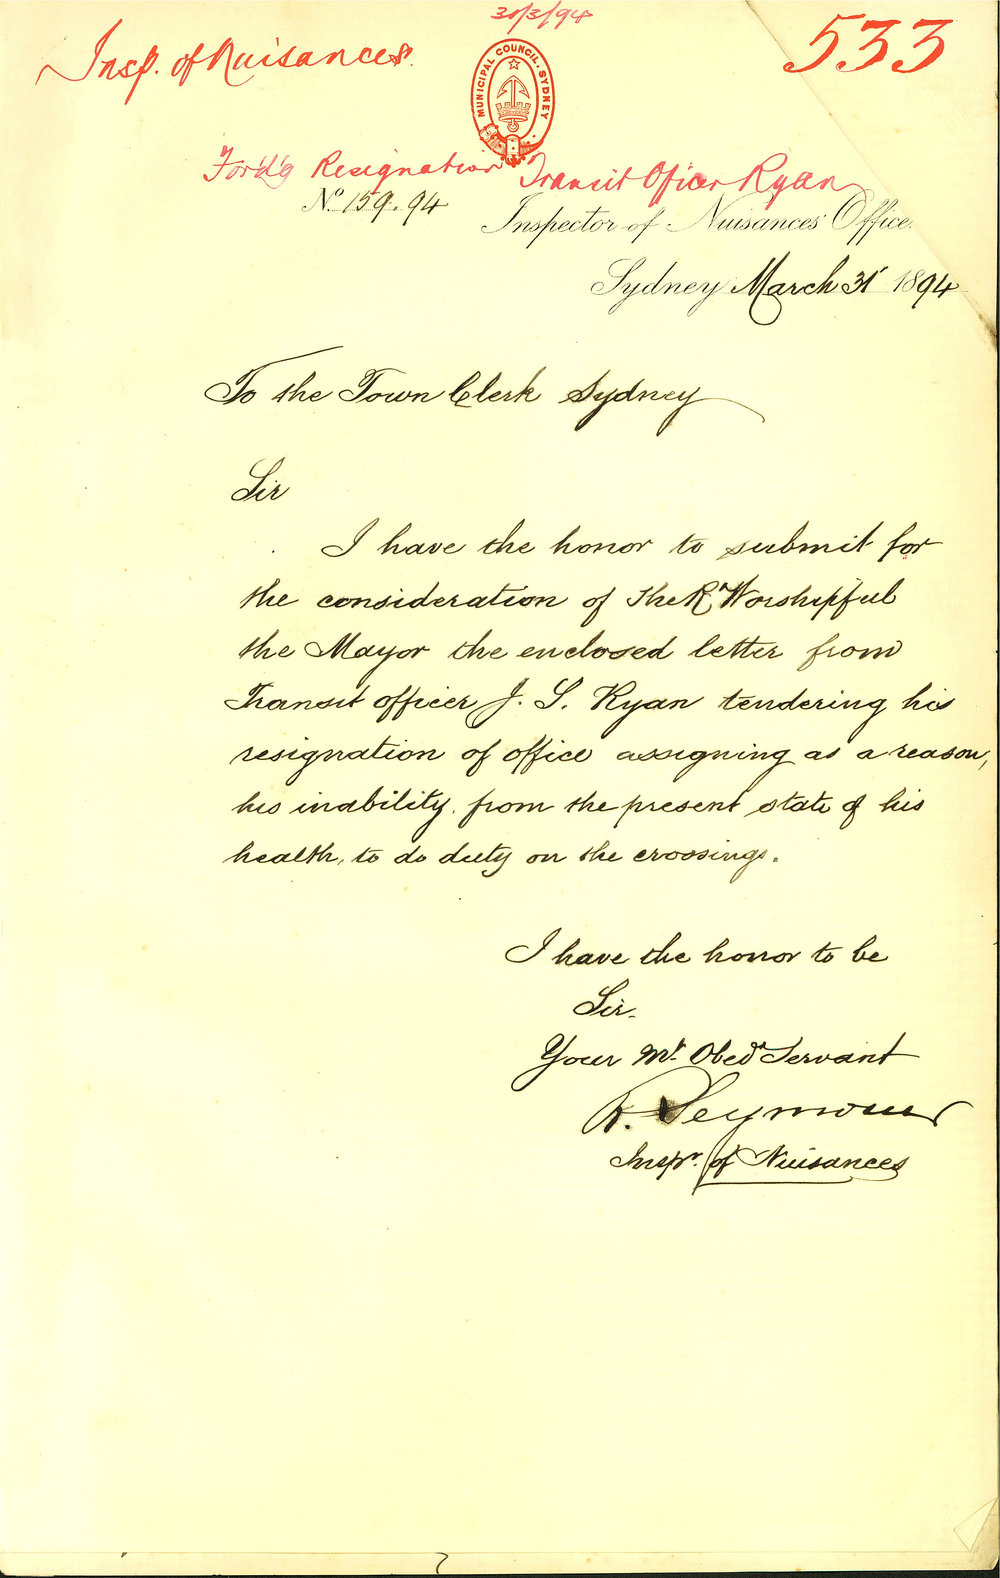 30/3/94
533
Insp. of Nuisances.
MUNICIPAL COUNCIL. SYDNEY
Ford'g Resignation Transit Oficer Ryan
No. 159.94
Inspector of Nuisances' Office.
Sydney March 31st 1894
To the Town Clerk Sydney
Sir
I have the honor to submit for
the consideration of the Rt Worshipful
the Mayor the enclosed letter from
Transit officer J. S. Ryan tendering his
resignation of office assigning as a reason,
his inability, from the present state of his
health, to do duty on the crossings.
I have the honor to be
Sir.
Your Mt. Obedt Servant
R. Seymour
Inspr. of Nuisances